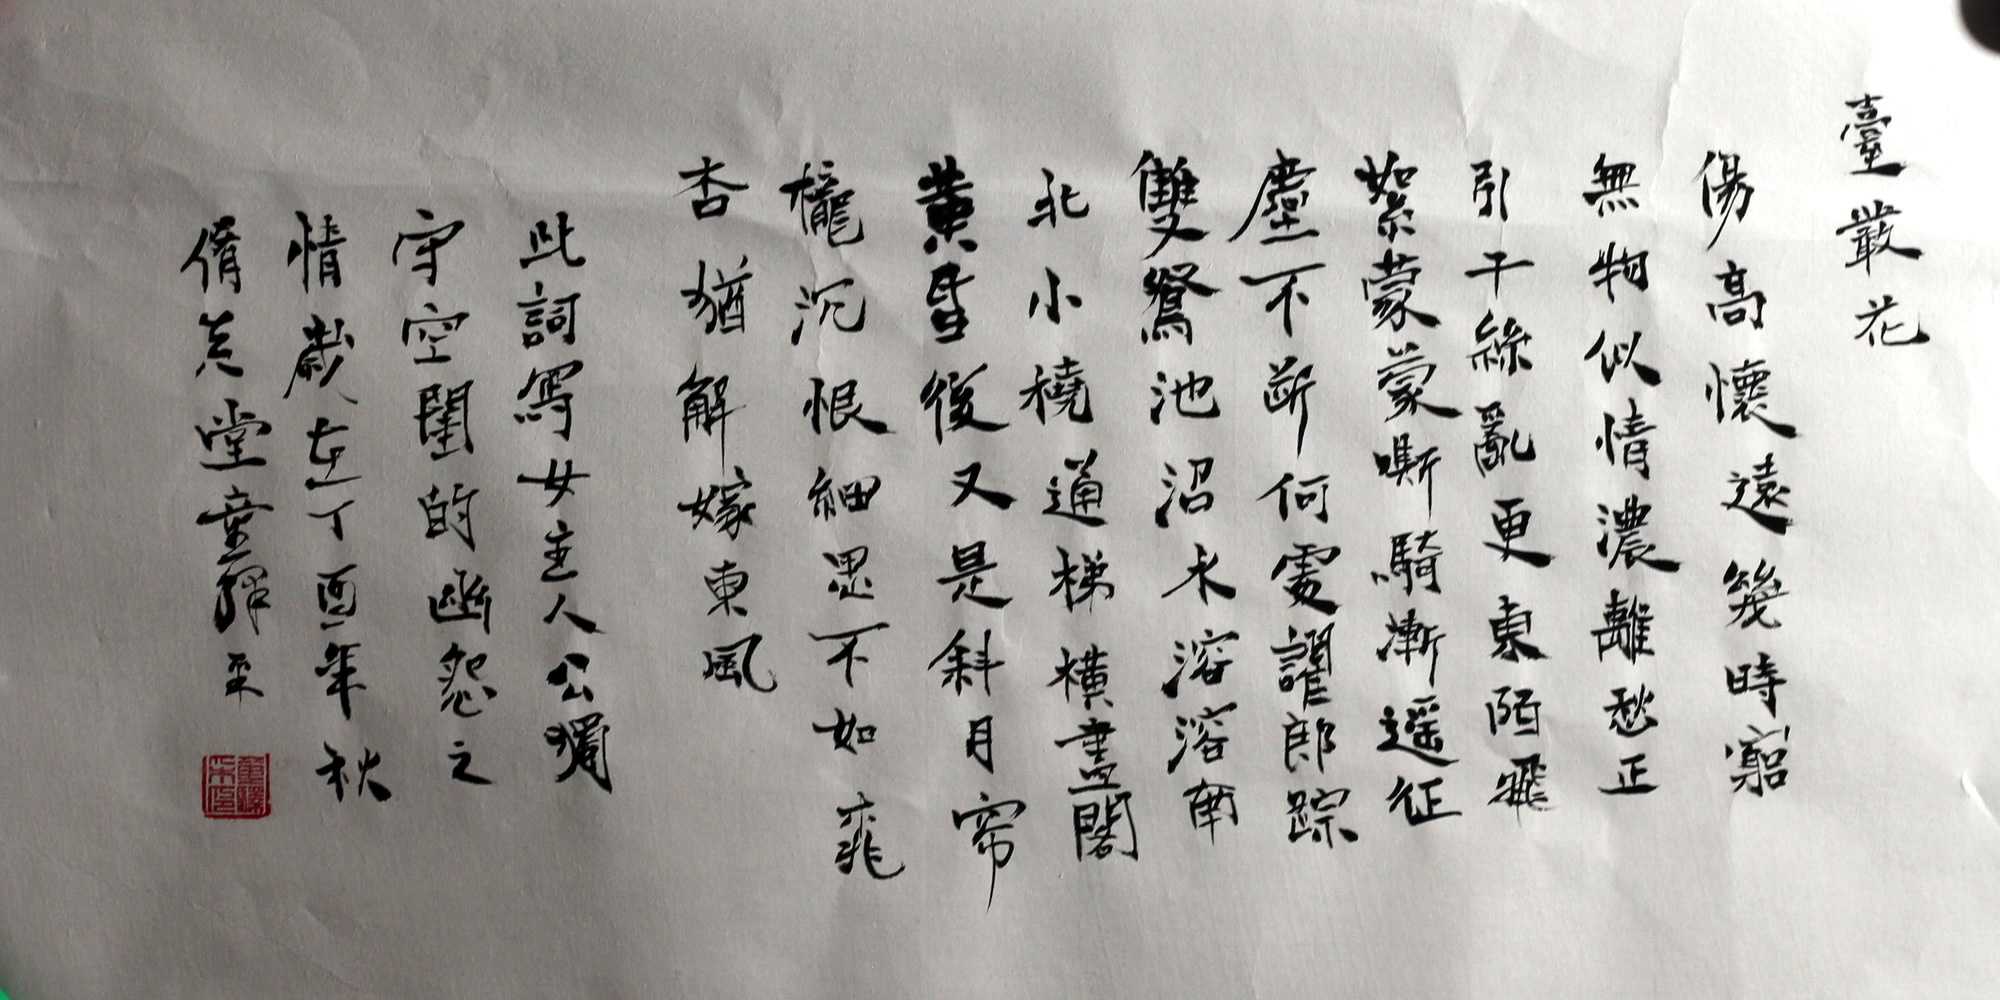 臺叢花
傷高懷遠幾時窮
無物似情濃離愁正
引千絲亂更東陌飛
絮蒙蒙嘶騎漸遥征
塵不斷何處認郎踪
雙鴛池沼水溶溶南
北小橈通梯橫畫閣
黄昏後又是斜月帘
櫳沉恨細思不如桃
杏猶解嫁東風
此詞寫女主人公獨
守空閨的幽怨之
情歲在丁酉年秋
堂童輝平